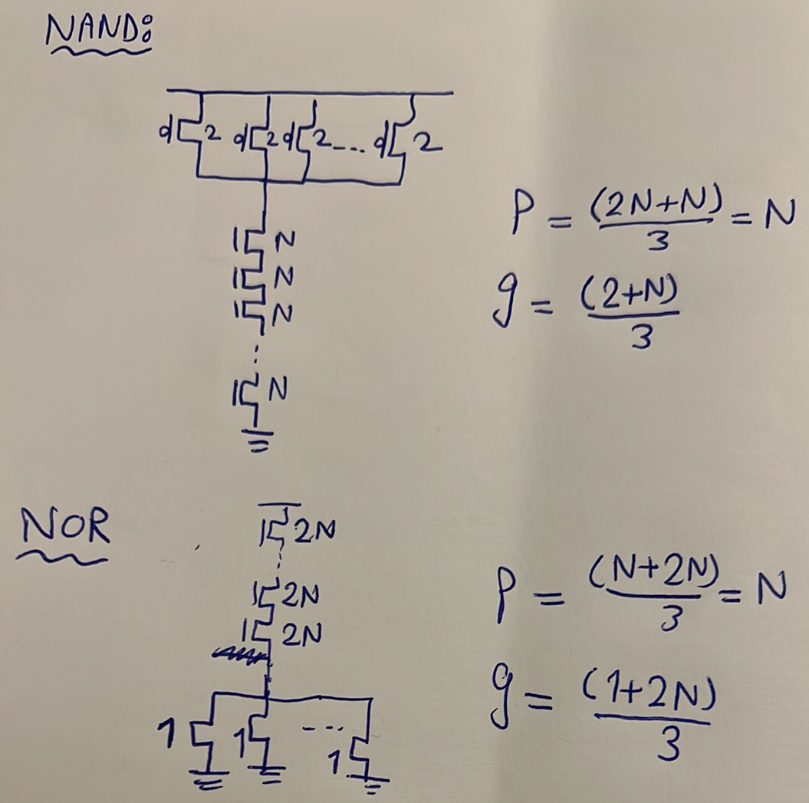 NAND:
2 2 2 ... 2
N
N
N
N
P = (2N+N)/3 = N
g = (2+N)/3
NOR
2N
2N
2N
1 1 ... 1
P = (N+2N)/3 = N
g = (1+2N)/3